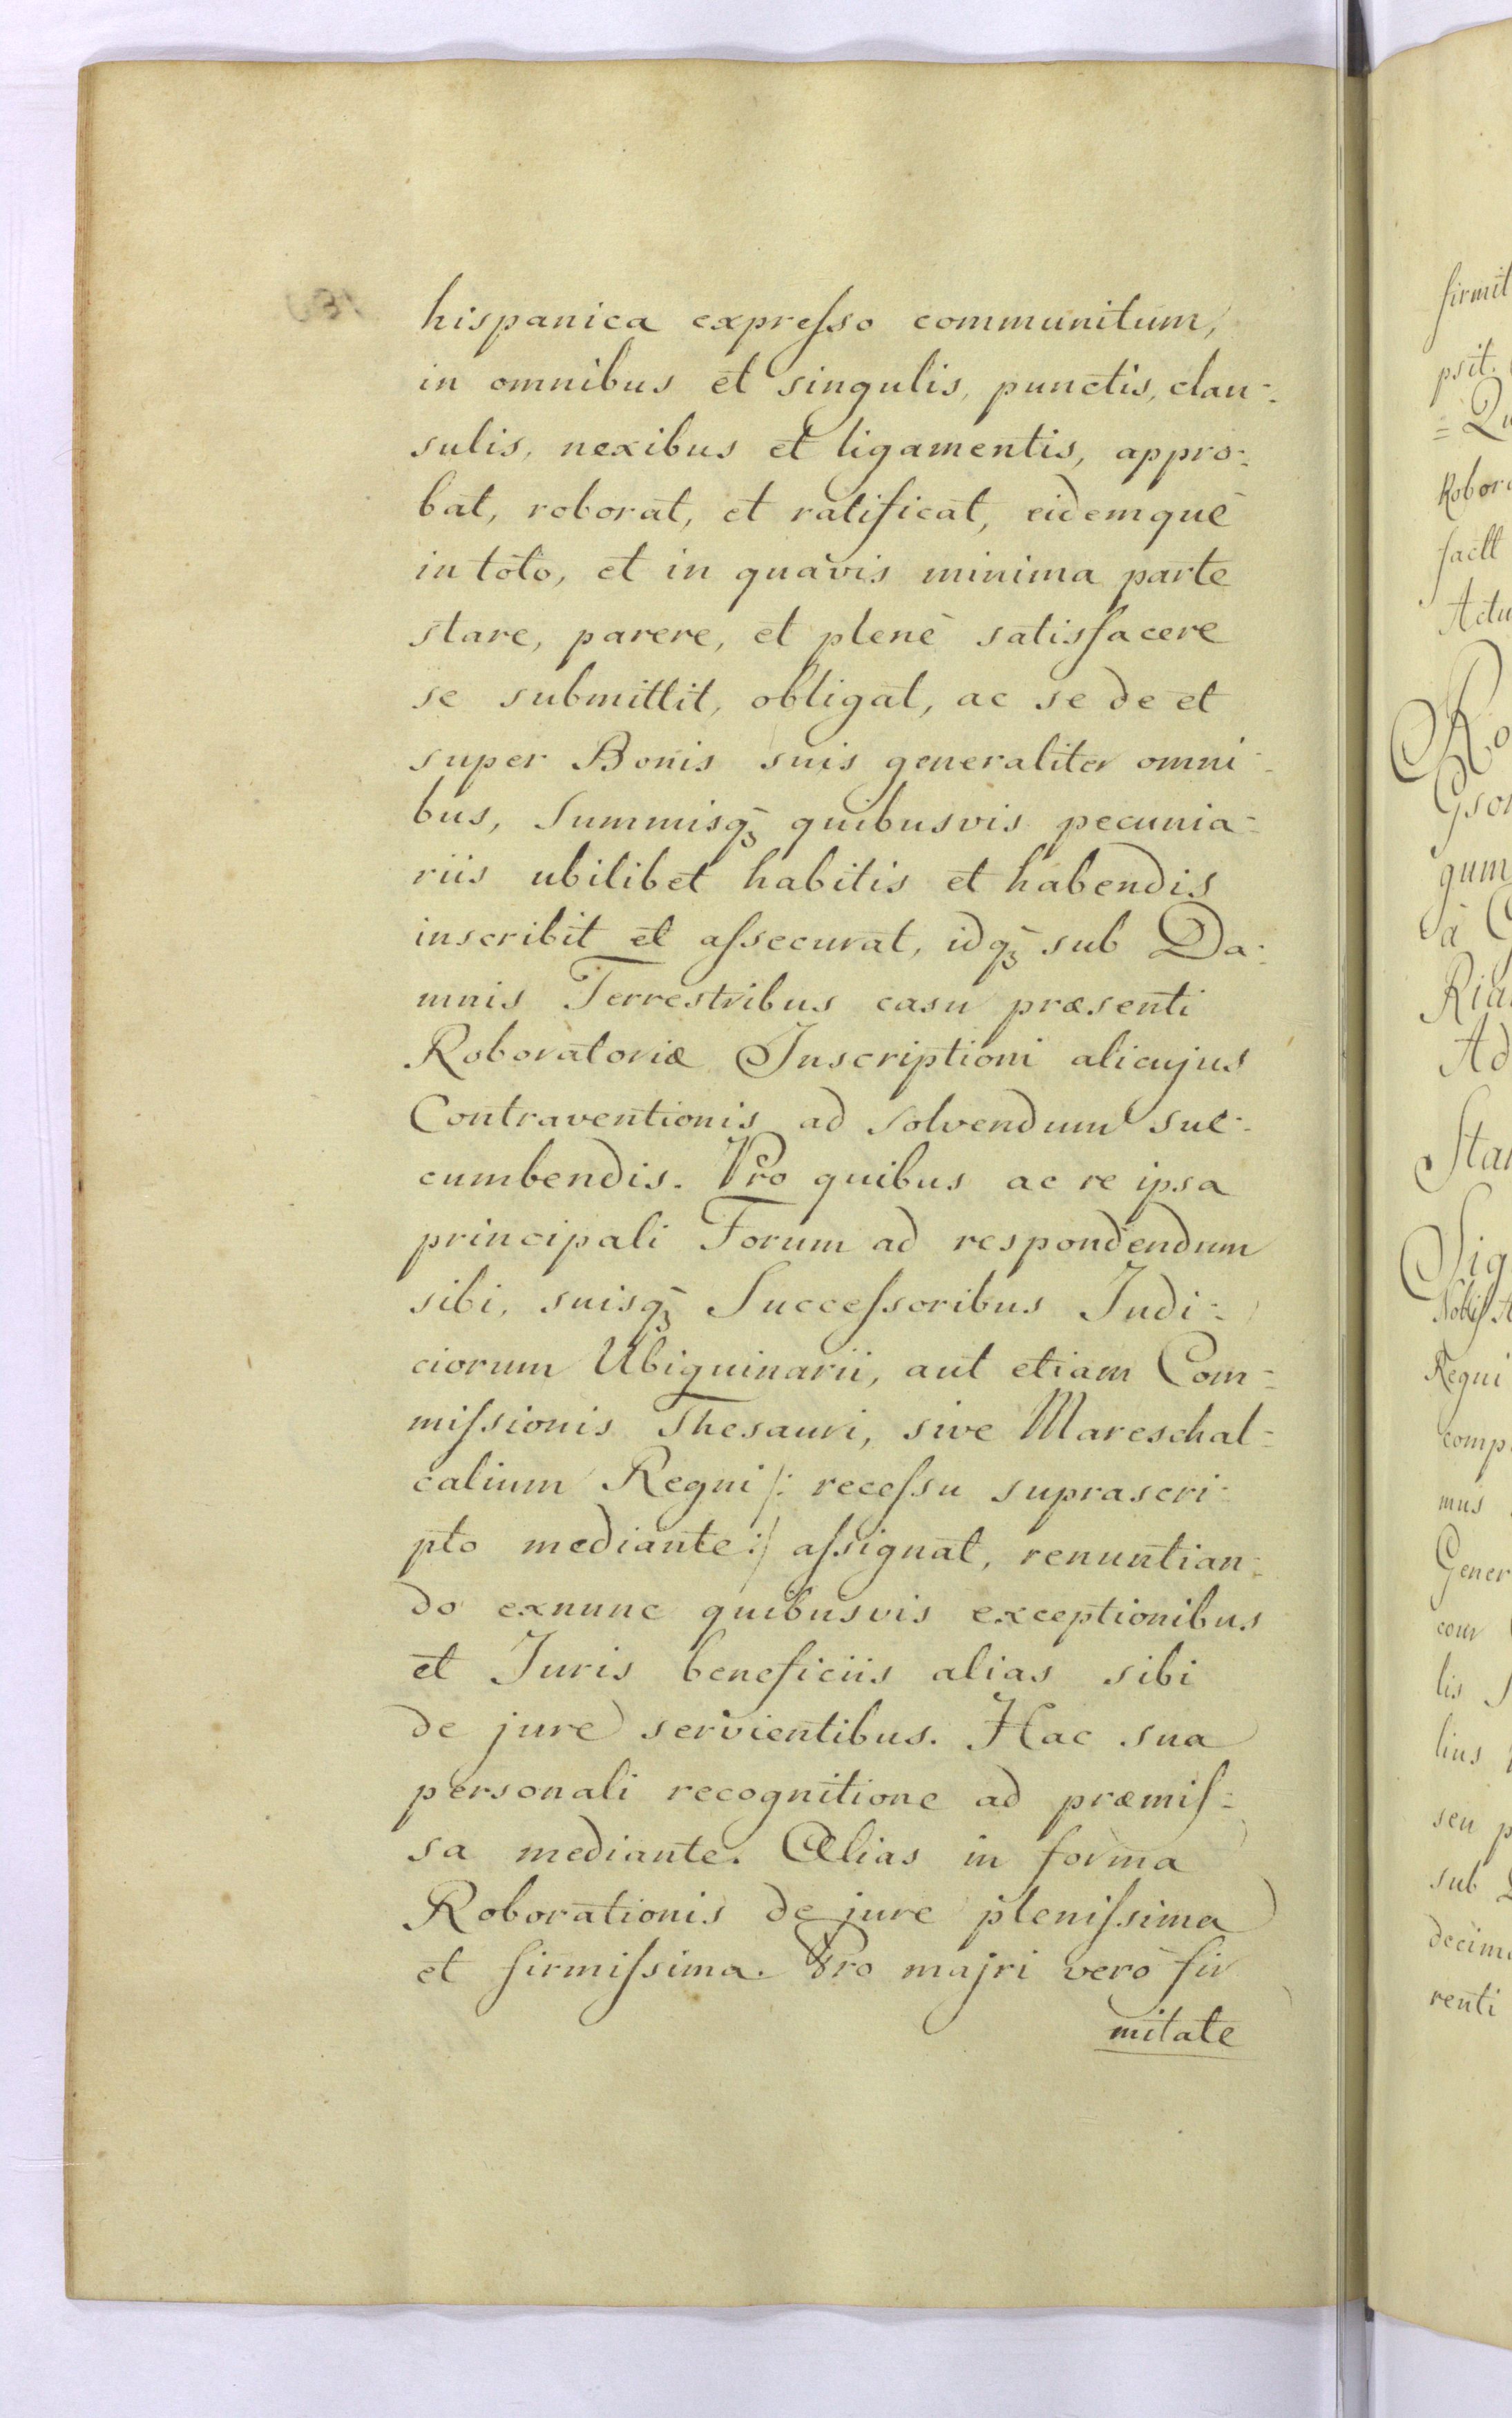 hispanica expresso communitum,
in omnibus et singulis, punctis, clau-
sulis, nexibus et ligamentis, appro-
bat, roborat, et ratificat, eidemquè
in toto, et in quavis minima parte
stare, parere, et plenè satisfacere
se submittit, obligat, ac se de et
super Bonis suis generaliter omni-
bus, Summisq₃ quibusvis pecunia-
riis ubilibet habitis et habendis
inscribit et assecurat, idq₃ sub Da-
mnis Terrestribus casu præsenti
Roboratoriæ Inscriptioni alicujus
Contraventionis ad solvendum suc-
cumbendis. Pro quibus ac re ipsa
principali Forum ad respondendum
sibi, suisq₃ Successoribus Judi-
ciorum Ubiquinarii, aut etiam Com-
missionis Thesauri, sive Mareschal-
calium Regni /: recessu suprascri-
pto mediante :/ assignat, renuntian-
do exnunc quibusvis exceptionibus
et Juris beneficiis alias sibi
de jure servientibus. Hac sua
personali recognitione ad præmis-
sa mediante. Alias in forma
Roborationis de jure plenissima
et firmissima. Pro majri verò fir
mitate
firmit
psit.
= Qu
Robor
factt
Actu
Ro
gum
à
Ria
Ad
Sta
Sig
Regni
comp
mus
Gener
lis
lius
seu p
sub
decim
renti